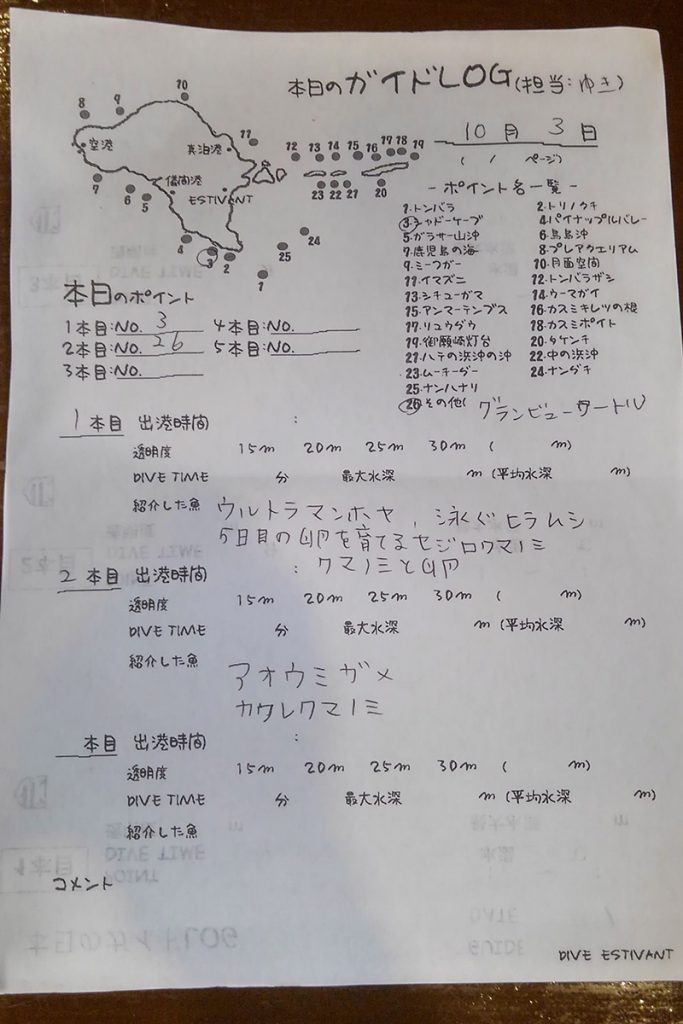 本日のガイドLOG(担当:ゆき)
10月 3日
( / ページ)
空港
真泊港
儀間港
ESTIVANT
8
9
10
11
12 13 14 15 16 17 18 19
23 22 21 20
7
6
5
4
3
2
1
25
24
- ポイント名一覧 -
1.トンバラ 2.トリノクチ
3.シャドーケーブ 4.パイナップルバレー
5.ガラサー山沖 6.鳥島沖
7.鹿児島の海 8.プレアクエリアム
9.ミーフガー 10.月面空間
11.イマズニ 12.トンバラザシ
13.シチューガマ 14.ウーマガイ
15.アンマーテンプス 16.カスミキレツの根
17.リュウグウ 18.カスミポイト
19.御願崎灯台 20.タケンチ
21.ハテの浜沖の沖 22.中の浜沖
23.ムーチーグー 24.ナングチ
25.ナンハナリ
26.その他( グランビュータートル)
本日のポイント
1本目:NO. 3 4本目:NO.
2本目:NO. 26 5本目:NO.
3本目:NO.
1 本目 出港時間 :
透明度 15m 20m 25m 30m ( m)
DIVE TIME 分 最大水深 m (平均水深 m)
紹介した魚 ウルトラマンホヤ, 泳ぐヒラムシ
5日目の卵を育てるセジロクマノミ
クマノミと卵
2 本目 出港時間 :
透明度 15m 20m 25m 30m ( m)
DIVE TIME 分 最大水深 m (平均水深 m)
紹介した魚 アオウミガメ
カクレクマノミ
本目 出港時間 :
透明度 15m 20m 25m 30m ( m)
DIVE TIME 分 最大水深 m (平均水深 m)
紹介した魚
コメント
DIVE ESTIVANT